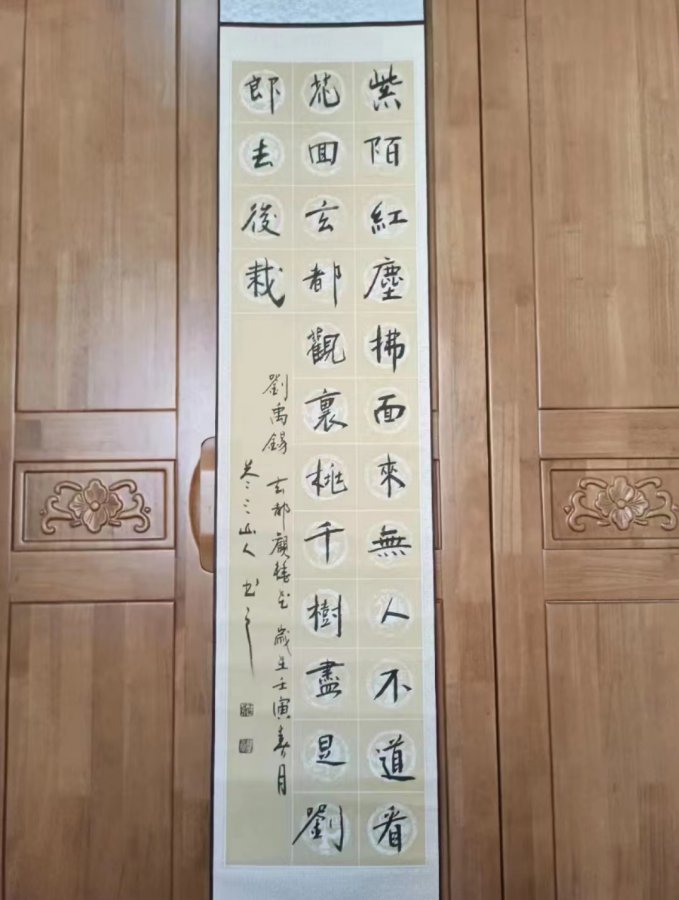 紫陌紅塵拂面來無人不道看
花回玄都觀裏桃千樹盡是劉
郎去後栽
劉禹錫 玄都觀桃花 歲在壬寅春月
山人 书